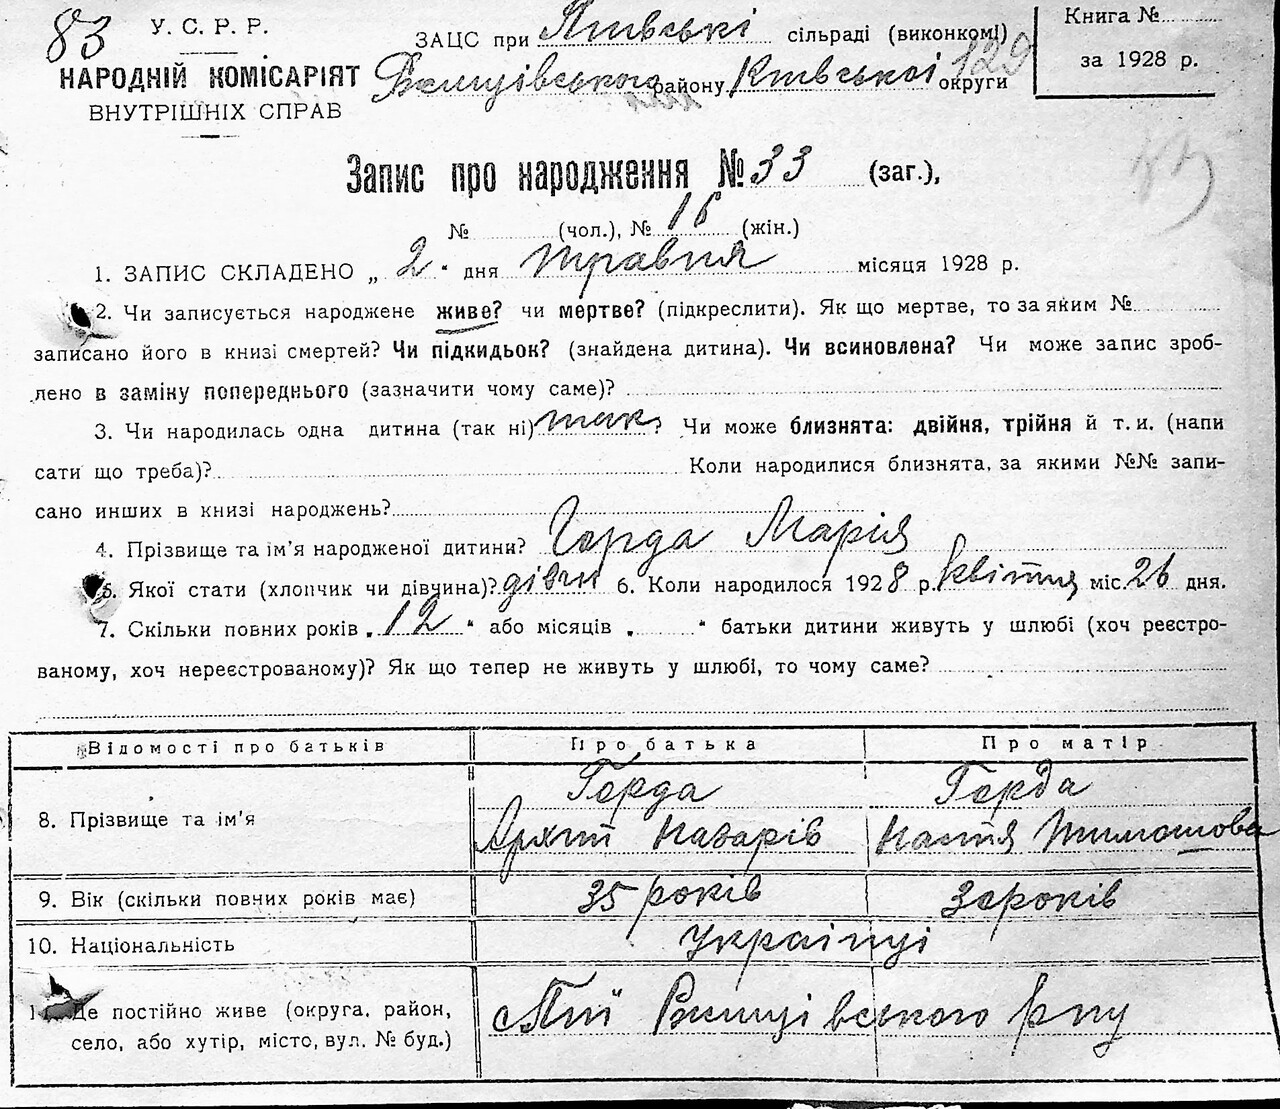 83
У. С. Р. Р.
НАРОДНІЙ КОМІСАРІЯТ
ВНУТРІШНІХ СПРАВ
ЗАЦС при сільраді (виконкомі)
району Київської округи
129
Книга №
за 1928 р.
Запис про народження № 33 (заг.),
№ (чол.), № 16 (жін.)
1. ЗАПИС СКЛАДЕНО „ 2 “ дня травня місяця 1928 р.
2. Чи записується народжене живе? чи мертве? (підкреслити). Як що мертве, то за яким №
записано його в книзі смертей? Чи підкидьок? (знайдена дитина). Чи всиновлена? Чи може запис зроб-
лено в заміну попереднього (зазначити чому саме)?
3. Чи народилась одна дитина (так ні) так? Чи може близнята: двійня, трійня й т. и. (напи
сати що треба)? Коли народилися близнята, за якими №№ запи-
сано инших в книзі народжень?
4. Прізвище та ім'я народженої дитини? Горда Марія
5. Якої стати (хлопчик чи дівчина)? дівчи 6. Коли народилося 1928 р. квітня міс. 26 дня.
7. Скільки повних років „ 12 “ або місяців „ “ батьки дитини живуть у шлюбі (хоч реєстро-
ваному, хоч нереєстрованому)? Як що тепер не живуть у шлюбі, то чому саме?
Відомості про батьків Про батька Про матір
Горда Горда
8. Прізвище та ім'я Назарів Настя Тимошова
9. Вік (скільки повних років має) 35 років 30 років
10. Національність Українці
11. Де постійно живе (округа, район,
село, або хутір, місто, вул. № буд.) Ржищівського р-ну